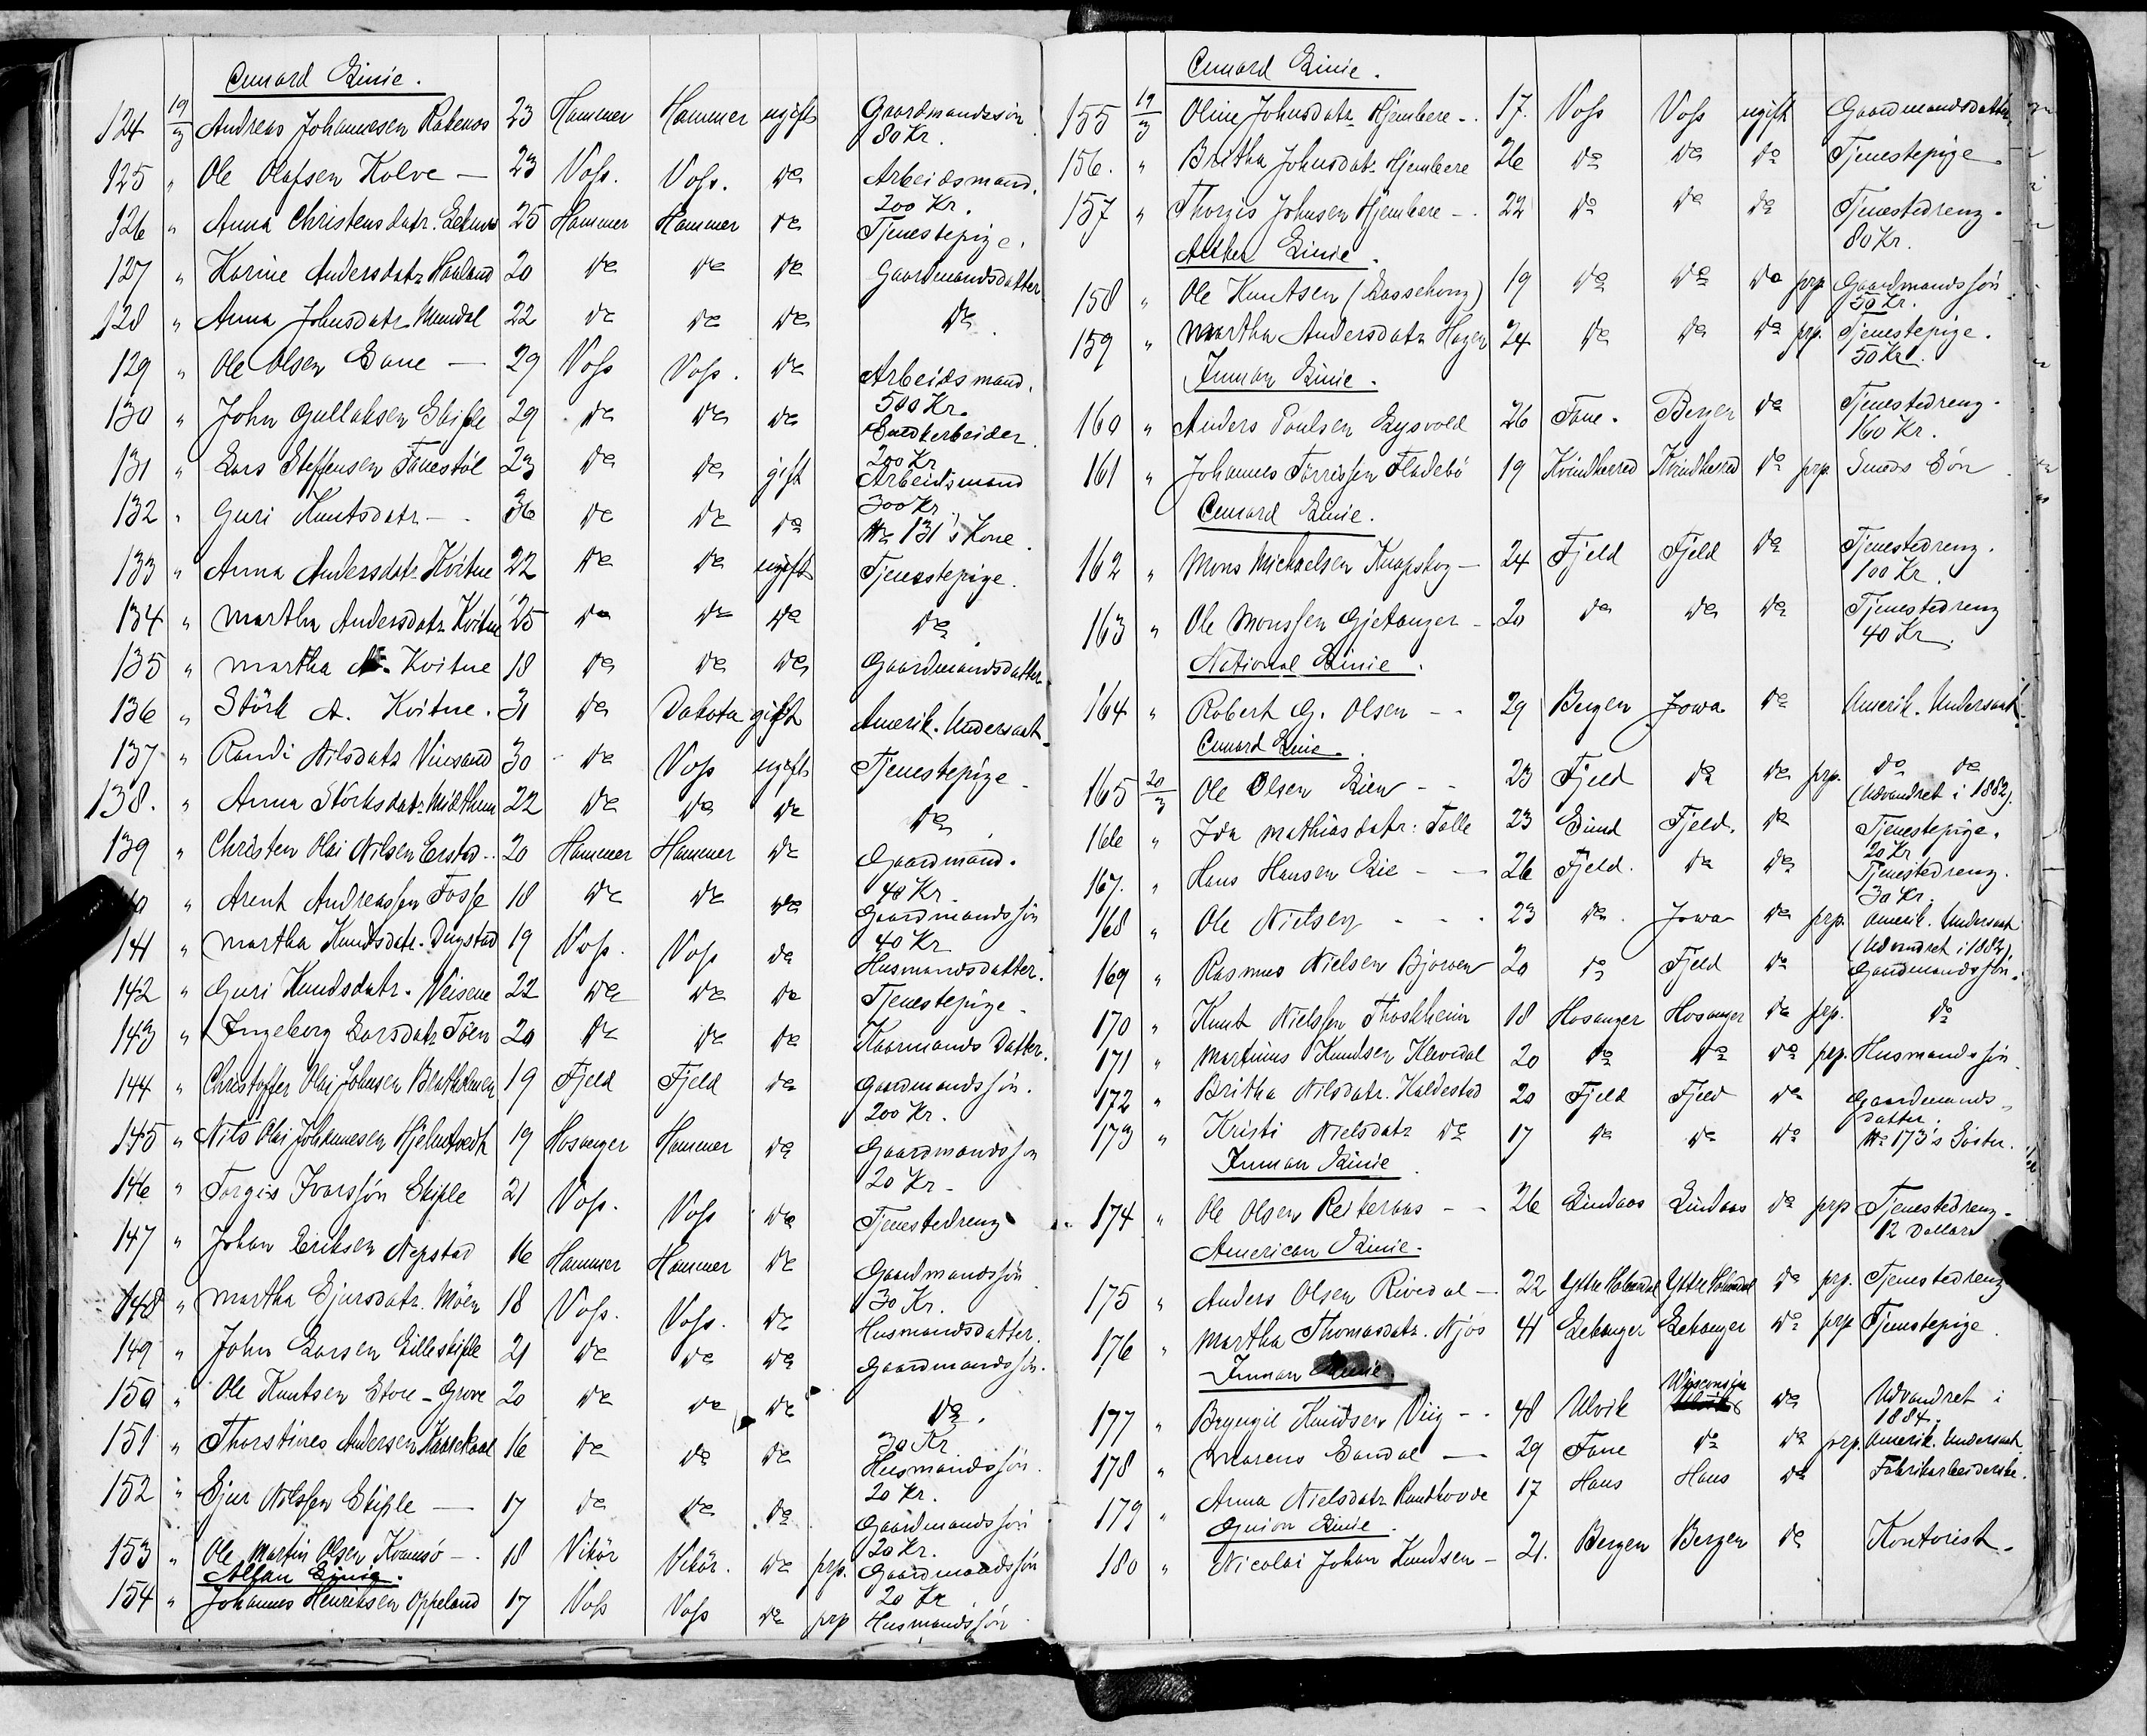 Cunard Linie.
124 19/3 Andreas Johannesen Rabnaas 23 Hammer Hammer ugift Gaardmandssøn
80 Kr.
125 " Ole Olafsen Kolve — 23 Voss. Voss. do Arbeidsmand.
200 Kr.
126 " Anna Christensdatr. 25 Hammer Hammer do Tjenestepige.
127 " Karine Andersdatr. Hauland 20 do do do Gaardmandsdatter
128 " Anna Johnsdatr. Mundal 22 do do do do.
129 " Ole Olsen Gane — 29 Voss Voss. do Arbeidsmand.
500 Kr.
130 " John Gullaksen Skiple 29 do do do
200 Kr
131 " Lars Steffensen Fenestøl 23 do do gift Arbeidsmand
300 Kr.
132 " Guri Knutsdatr — . 36 do do do No 131's Kone.
133 " Anna Andersdatr. Kvitne 22 do do ugift Tjenestepige.
134 " Martha Andersdatr. Kvitne 25 do do do do.
135 " Martha A. Kvitne 18 do do do Gaardmandsdatter.
136 " Störk A. Kvitne. 31 do Dakota gift Amerik. Undersaat.
137 " Randi Nilsdatr. Vinsand 30 do Voss ugift Tjenestepige.
138. " Anna Störksdatr. Midthun 22 do do do do.
139 " Christen Olai Nilsen Erstad .. 20 Hammer Hammer do Gaardmand.
40 Kr.
" Arent Andreassen Fosse 18 do do do Gaardmandssøn
40 Kr
141 " Martha Knutsdatr. Dugstad 19 Voss. Voss do Husmandsdatter.
142 " Guri Knudsdatr. Veisene 22 do do do Tjenestepige.
143 " Ingeborg Larsdatr. Töen 20 do do do Kaarmands Datter.
144 " Christoffer Olai Johnsen Bratholmen 19 Fjeld Fjeld do Gaardmandssøn.
200 Kr.
145 " Nils Olai Johannesen Hjelmtvedt 19 Hosanger Hammer do Gaardmandssøn
20 Kr.
146 " Torgis Ivarssøn Skiple 21 Voss. Voss do Tjenestedreng
147 " Johan Eriksen Nepstad 16 Hammer Hammer do Gaardmandssøn
30 Kr.
148 " Martha Sjursdatr. Möen 18 Voss. Voss. do Husmandsdatter.
149 " John Larsen Lilleskiple 21 do do do Gaardmandssøn.
150 " Ole Knutsen Store-Grove 20 do do do do.
30 Kr
151 " Thorstines Andersen 16 do do do Husmandssøn.
20 Kr.
152 " Sjur Nilssen Skiple — 17 do do do Gaardmandssøn
20 Kr.
153 " Ole Martin Olsen Kvamsö — . 18 Vikör Vikör. do prp. Gaardmandssøn
20 Kr
Allan Linie.
154 " Johannes Henriksen Oppeland 17 Voss Voss do prp Husmandssøn
Cunard Linie.
155 19/3 Oline Johnsdatr. Hjembere — . 17. Voss Voss ugift Gaardmandsdatter
156. " Britha Johnsdatr. Hjembere 26 do do do Tjenestepige.
157 " Thorgis Johnsen Hjembere — . 22 do do do Tjenestedreng.
80 Kr.
Linie.
158 " Ole Knutsen (Lassehong) 19 do do do prp Gaardmandssøn
50 Kr.
159 " Martha Andersdatr. Hagen 24 do do do prp. Tjenestepige.
50 Kr.
Inman Linie.
160 " Anders Poulsen Lysvold 26 Fane. Bergen do Tjenestedreng.
160 Kr.
161 " Johannes Tørrissen Fladebö 19 Kvindherred Kvindherred do prp. Smeds Søn
Cunard Linie.
162 " Mons Michaelsen Knapskog — 24 Fjeld Fjeld do Tjenestedreng.
100 Kr.
163 " Ole Monssen Gjetanger — 20 do do do Tjenestedreng
40 Kr.
National Linie.
164 " Robert G. Olsen — . 29 Bergen Jowa do Amerik. Undersaat.
Cunard Linie.
165 20/3 Ole Olsen Lien — — 23 Fjeld do do prp. do do
(Udvandret i 1882).
166 " Ida Mathiasdatr. Tolle 23 Sund Fjeld. do Tjenestepige.
20 Kr
167. " Hans Hansen Lie — — 26 Fjeld. do do Tjenestedreng.
30 Kr.
168 " Ole Nielsen - - . 23 do. Jowa do prp. Amerik. Undersaat
(Udvandret i 1882).
169 " Rasmus Nielsen Bjorøen 20 do Fjeld do Gaardmandssøn.
170 " Knut Nielssen Thoskheim 18 Hosanger Hosanger do prp. do
171 " Martinus Knudsen Kleveland 20 do do do prp. Husmandssøn.
172 " Britha Nilsdatr. Kaldestad 20 Fjeld Fjeld do Gaardmands-
datter.
173 " Kristi Nielsdatr do 17 do do do No 173's Søster.
Inman Linie.
174 " Ole Olsen Reiteraas — — 26 Lindaas Lindaas do prp Tjenestedreng.
12 Dollars
American Linie.
175 " Anders Olsen Rivedal — 22 Yttre Holmedal Yttre Holmedal do prp. Tjenestedreng
176 " Martha Thomasdatr. Njös 41 Lekanger Lekanger do prp Tjenestepige.
Inman Linie.
177 " Brynjil Knudsen Viig — . 48 Ulvik Wisconsin do Udvandret i
1884.
178 " Marens Sandal — 29 Fane do do prp. Amerik. Undersaat.
179 " Anna Nielsdatr. Rundhovde 17 Haus Haus do Fabrikarbeiderske.
Guion Linie.
180 " Nicolai Johan Knudsen — 21. Bergen Bergen do Kontorist.